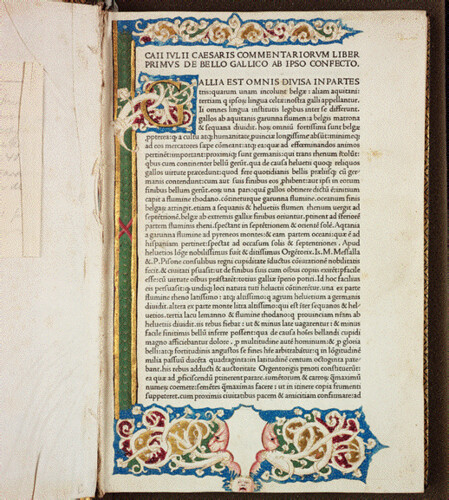 CAII IVLII CAESARIS COMMENTARIORVM LIBER
PRIMVS DE BELLO GALLICO AB IPSO CONFECTO.
GALLIA EST OMNIS DIVISA IN PARTES
tris: quarum unam incolunt belgæ: aliam aquitani:
tertiam q ipsoꝝ lingua celtæ: nostra galli appellantur.
Ii omnes lingua institutis legibus inter se differunt.
gallos ab aquitanis garunna flumen: a belgis matrona
& sequana diuidit. hoꝝ omniū fortissimi sunt belgæ
a cultu atq; humanitate longissime absūt: minimeq;
ad eos mercatores sæpe cōmeant: atq; ea quæ ad effœminandos animos
pertinēt important: proximiq; sunt germanis: qui trans rhenum īcolūt:
qbus cum continenter bellū gerūt. qua de causa heluetii quoq; reliquos
gallos uirtute præcedunt: quod fere quotidianis bellis cū ger
manis contendunt: cum aut suis finibus eos phibent: aut ipsi in eorum
finibus bellum gerūt. eoꝝ una pars: quā gallos obtinere dictū ē: initium
capit a flumine rhodano. cōtineturque garunna flumine. oceano: finibus
belgaꝝ attingit. etiam a sequanis & heluetiis flumen rhenum uergit ad
septētrionē. belgæ ab extremis galliæ finibus oriuntur. ptinent ad īferiorē
partem fluminis rheni. spectant in septētrionem & orientē solē. Aqtania
a garunna flumine ad pyreneos montes: & eam partem oceani: quæ ē ad
hispaniam pertinet: spectat ad occasum solis & septentriones. Apud
heluetios lōge nobilissimus fuit & ditissimus Orgētorix. Is. M. Messalla
& .P. Pisone consulibus regni cupiditate iductus cōiurationē nobilitatis
fecit. & ciuitati psuasit: ut de finibus suis cum oībus copiis exirēt: pfacile
esse: cū uirtute oībus præstarēt: totius galliæ īperio potiri. Id hoc facilius
eis persuasit: q undiq; loci natura heluetii cōtinentur. una ex parte
flumine rheno latissimo: atq; altissimo: q agrum heluetium a germanis
diuidit. altera ex parte monte iura altissimo: qui est īter sequanos & hel-
uetios. tertia lacu lemanno & flumine rhodano: q prouinciam nrām ab
heluetiis diuidit. iis rebus fiebat: ut & minus late uagarentur: & minus
facile finitimis bellū inferre possent: qua de causa hoīes bellandi cupidi
magno afficiebantur dolore. p multitudine autē hominum: & p gloria
belli: atq; fortitudinis angustos se fines hēre arbitrabātur: q in lōgitudinē
milia passuū ducēta quadraginta: in latitudinē centum octoginta pate-
bant. his rebus adducti & auctoritate Orgentorigis pmoti constituerūt:
ea quæ ad pficiscendū ptinerent parare. iumētorum & carroꝝ qmaximū
numeꝝ coemere: semētes qmaximas facere: ut in itinere copia frumenti
suppeteret. cum proximis ciuitatibus pacem & amicitiam confirmare: ad